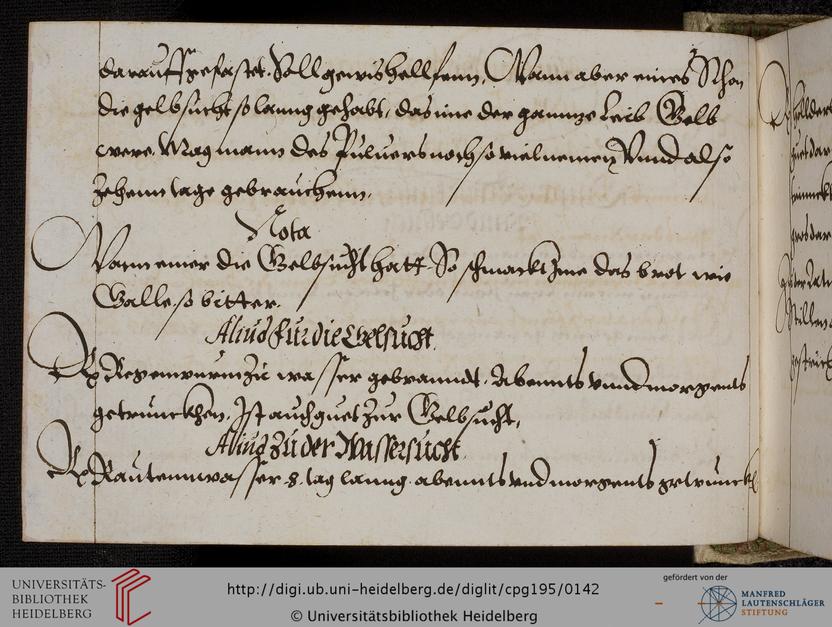 darauff gefastet. Soll gewis hellfenn, Wann aber einer Schon
die gelbsucht so lanng gehabt, das ime der gannze Leib Gelb
were. Mag mann des Puluers noch so viel nemen, Vnnd also
Zehenn tage gebrauchenn.
Nota
Wann einer die Gelbsucht hatt. So schmackt Ime das brot wie
Galle so bitter.
Aliud fur die Gelsucht
Rp Regenwurm Zu wasser gebranndt. Abennts vnnd morgents
getrunckhen. Ist auch guet Zur Gelbsucht,
Aliud Zu der Wassersucht
Rp Rautennwasser 8. tag lanng. abennts vnd morgents getrunckh
UNIVERSITÄTS-
BIBLIOTHEK
HEIDELBERG
http://digi.ub.uni-heidelberg.de/diglit/cpg195/0142
© Universitätsbibliothek Heidelberg
gefördert von der
MANFRED
LAUTENSCHLÄGER
STIFTUNG